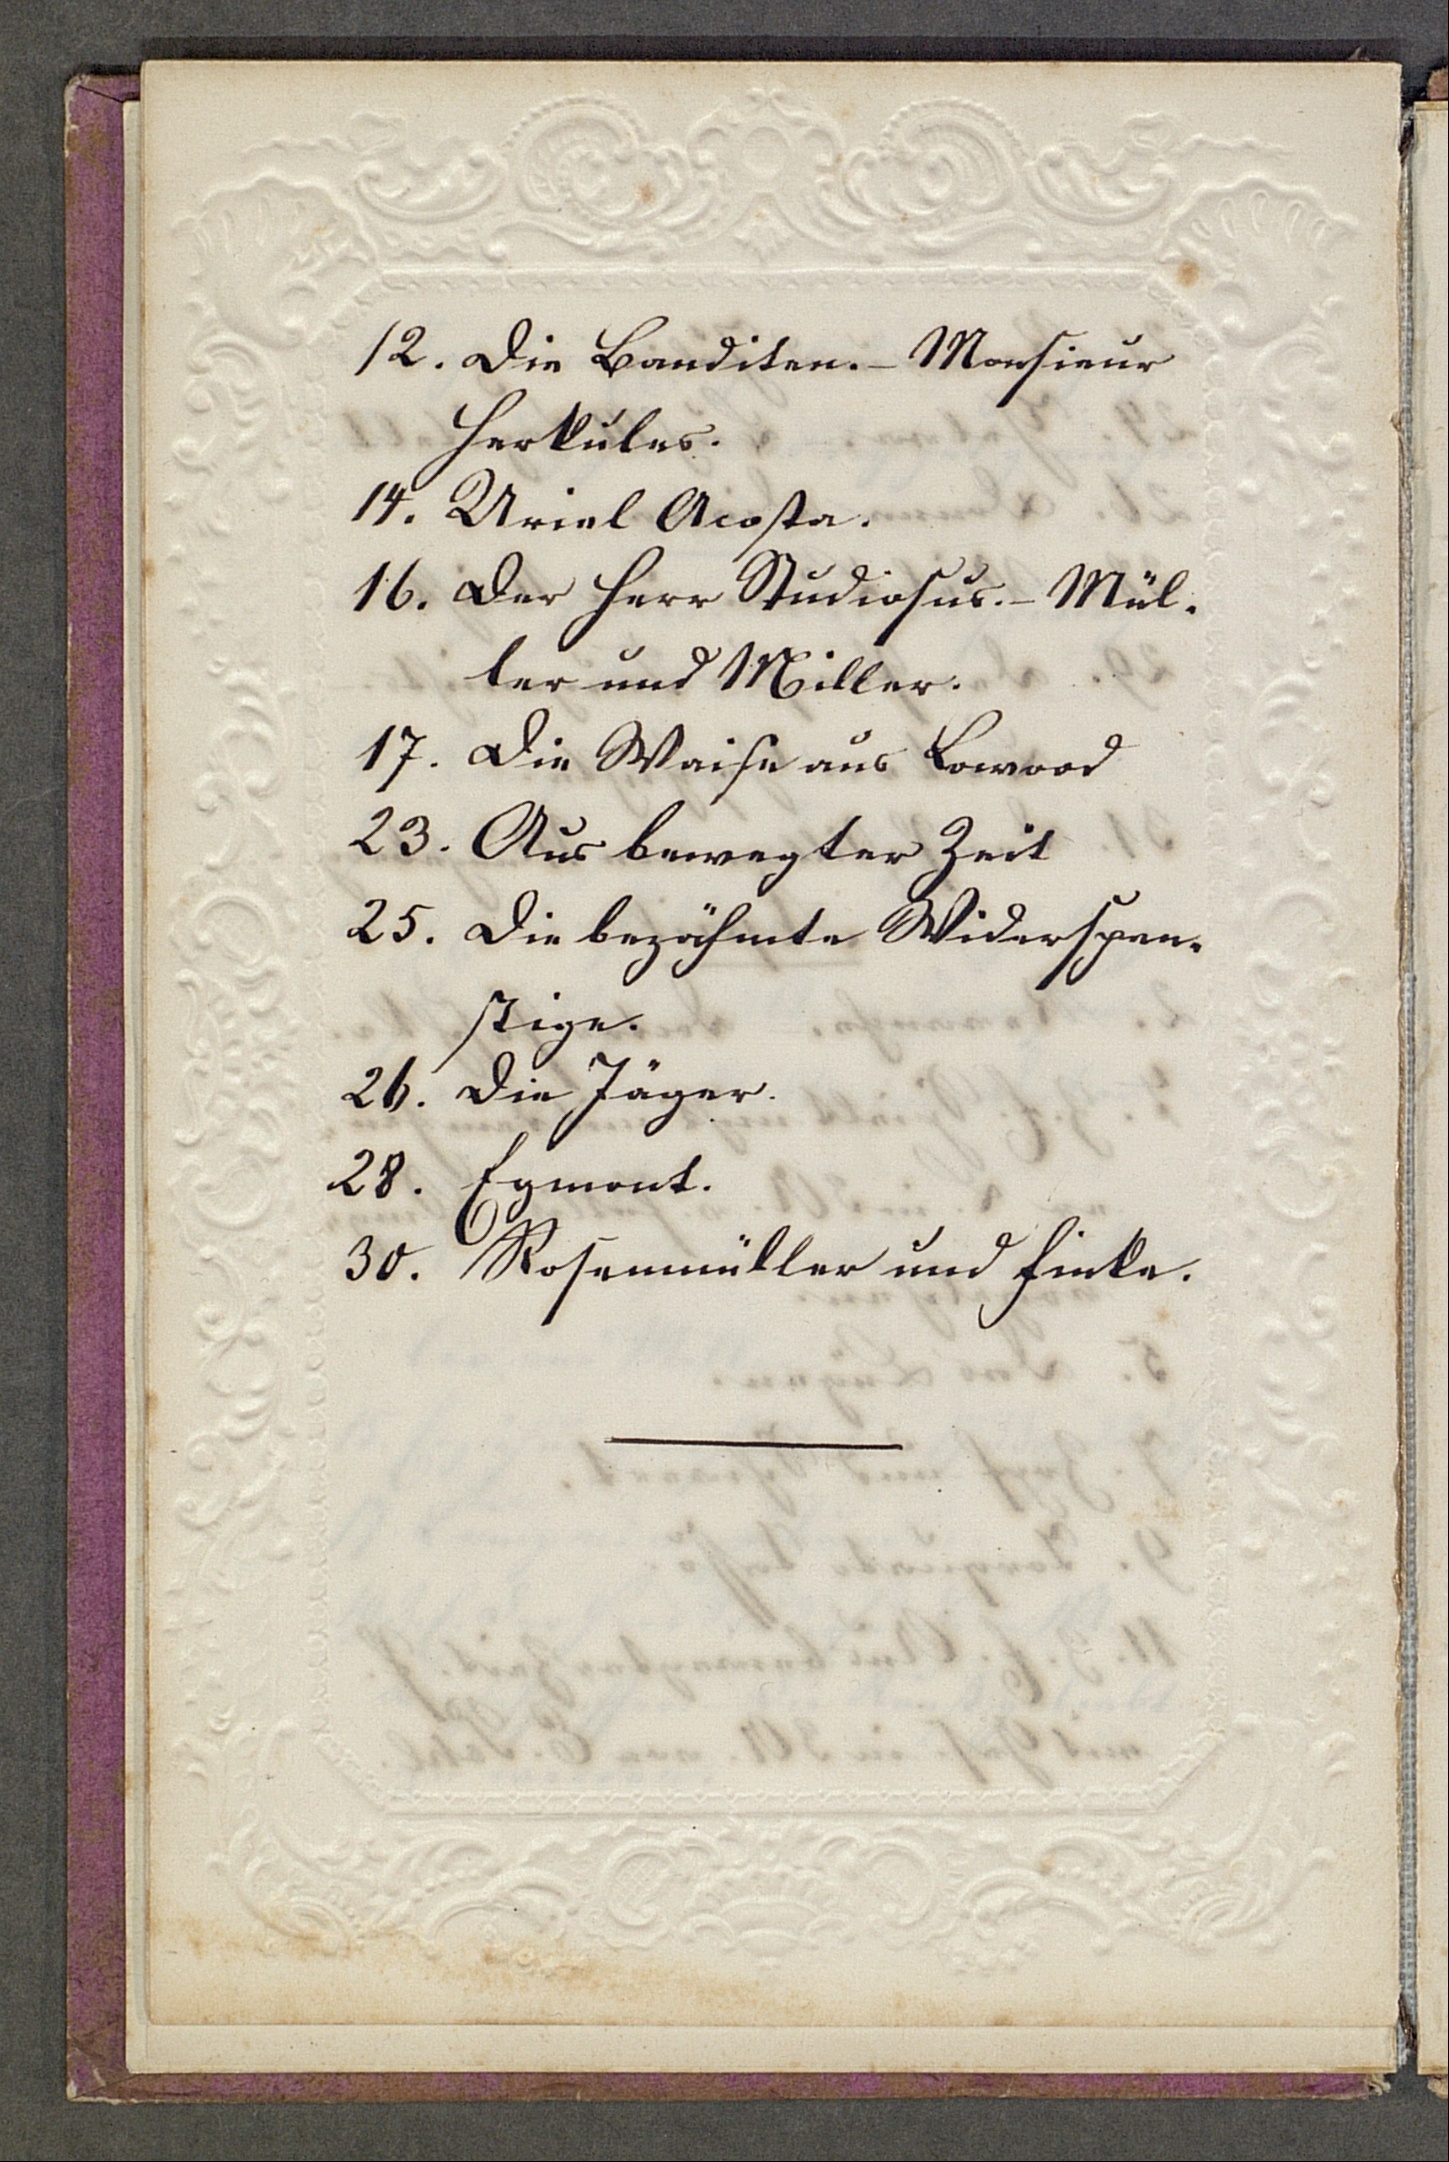 12. Die Banditen. – Monsieur
Herkules.
14. Uriel Acosta.
16. Der Herr Studiosus. – Mül-
ler und Miller.
17. Die Waise aus Lowood
23. Aus bewegter Zeit
25. Die bezähmte Widerspen-
stige.
26. Die Jäger.
28. Egmont.
30. Rosenmüller und Finke.